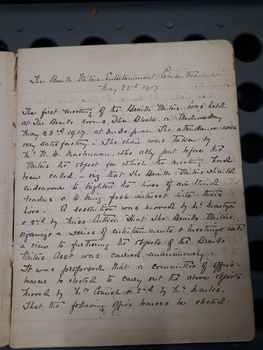 The Braille Writers Entertainment Committee
May 23rd 1917
The first meeting of the Braille Writers was held
at The Braille Rooms, The Block, on Wednesday
May 23rd 1917, at 3.30 p.m. The attendance was
very satisfactory. The chair was taken by
who ably put before the
Writers the object for which the meeting had
been called, - viz that the Braille Writers should
endeavour to brighten the lives of our blind
readers & to bring fresh interest into their
lives. A resolution was moved by Mr
& 2nd by Miss that the Braille Writers
a series of entertainments & meetings with
a view to furthering the objects of the Braille
Writers Assc was carried unanimously.
It was proposed that a committee of office
bearers be elected to carry out the above objects
moved by Mrs & 2nd by
That the following office bearers be elected